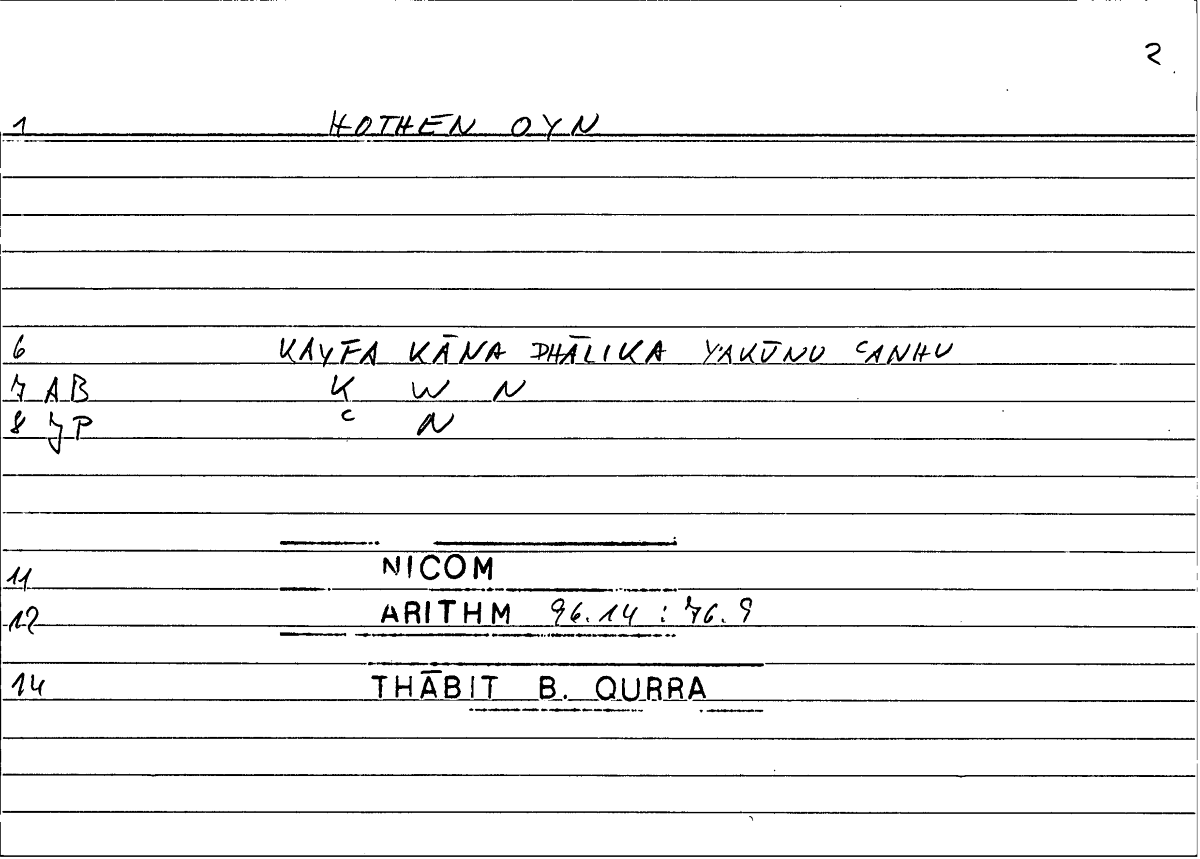 2
1 HOTHEN OYN
6 KAYFA KĀNA DHĀLIKA YAKŪNU ᶜANHU
7 AB K W N
8 JP ᶜ N
11 NICOM
12 ARITHM 96.14 : 76.9
14 THĀBIT B. QURRA